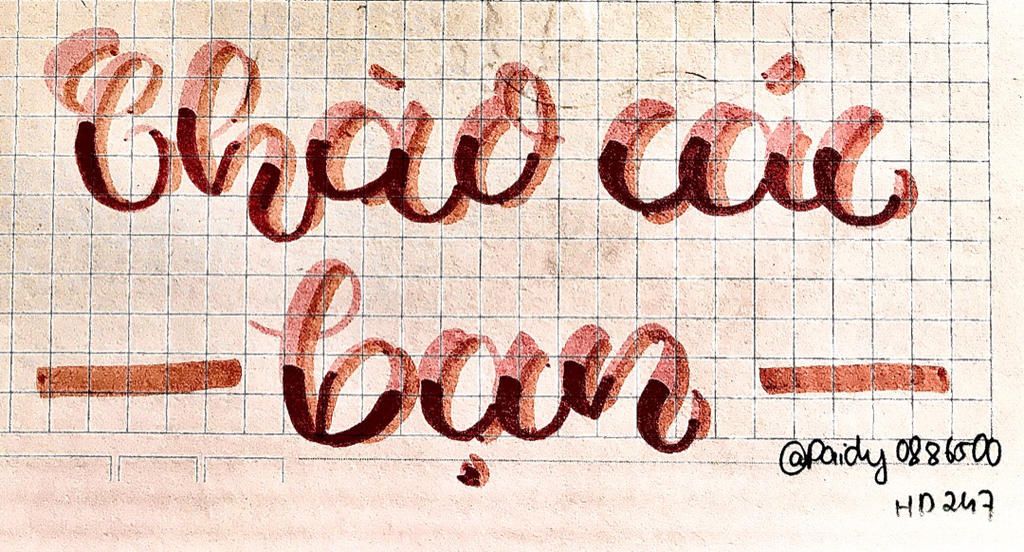 Chào các
bạn
@Paidy 0886500
HD247